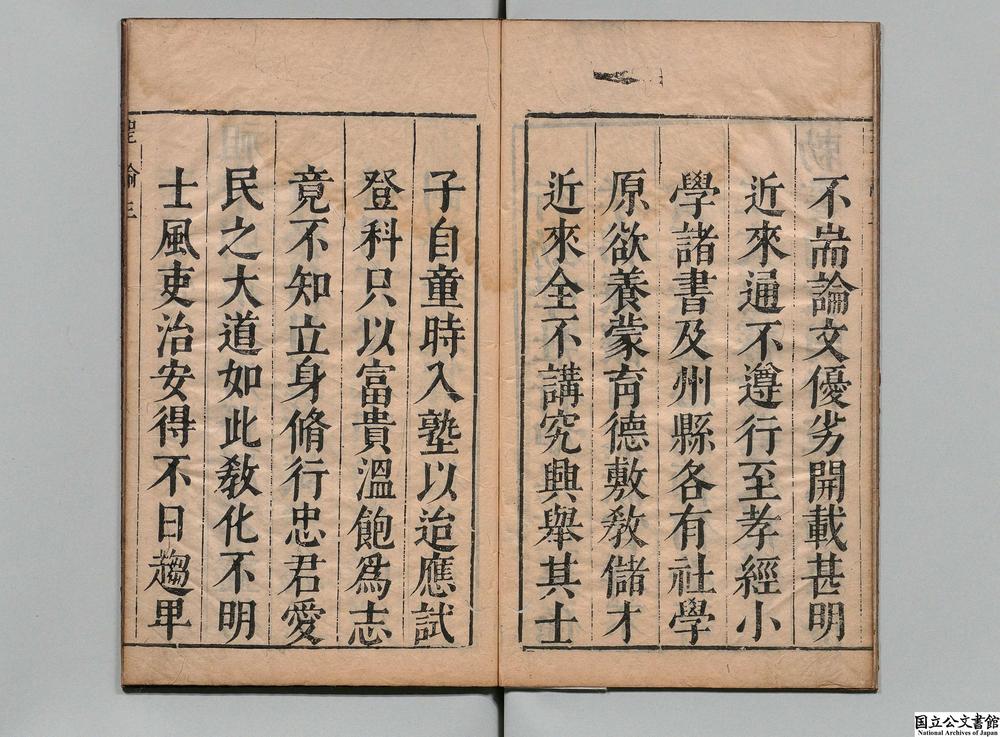 不耑論文優劣開載甚明
近來通不遵行至孝經小
學諸書及州縣各有社學
原欲養蒙育德敷敎儲才
近來全不講究興舉其士
子自童時入塾以迨應試
登科只以富貴溫飽爲志
竟不知立身脩行忠君愛
民之大道如此敎化不明
士風吏治安得不日趨卑
聖諭三
国立公文書館
National Archives of Japan